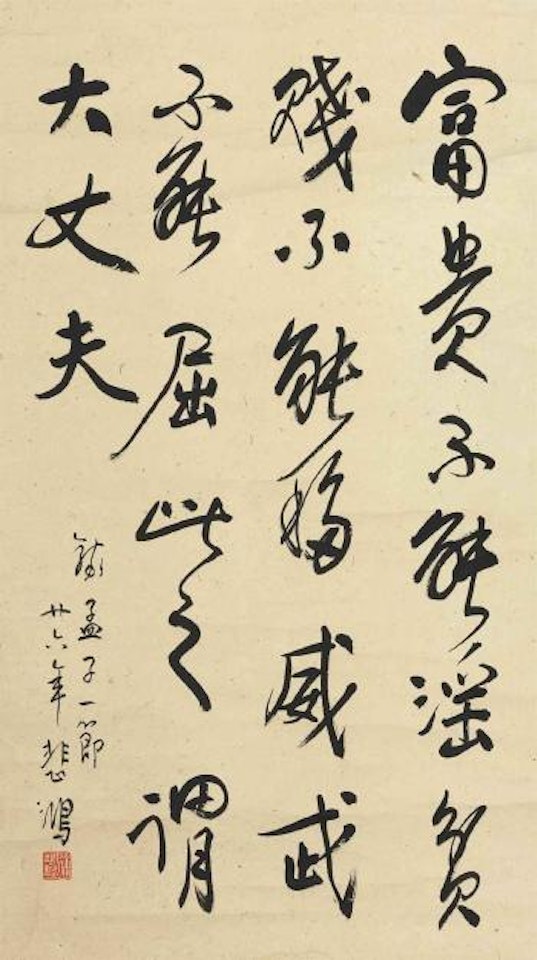 富貴不能淫貧
賤不能移威武
不能屈此之謂
大丈夫
錄孟子一節
廿六年悲鴻